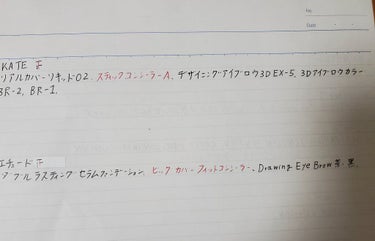 No.
Date
KATE 正
リアルカバーリキッド02、スティックコンシーラーA、デザイニングアイブロウ3D EX-5、3Dアイブロウカラー
BR-2、BR-1、
エチュード 正
ダブルラスティング セラムファンデーション、ビッグ カバー フィットコンシーラー、Drawing Eye Brow 茶、黒